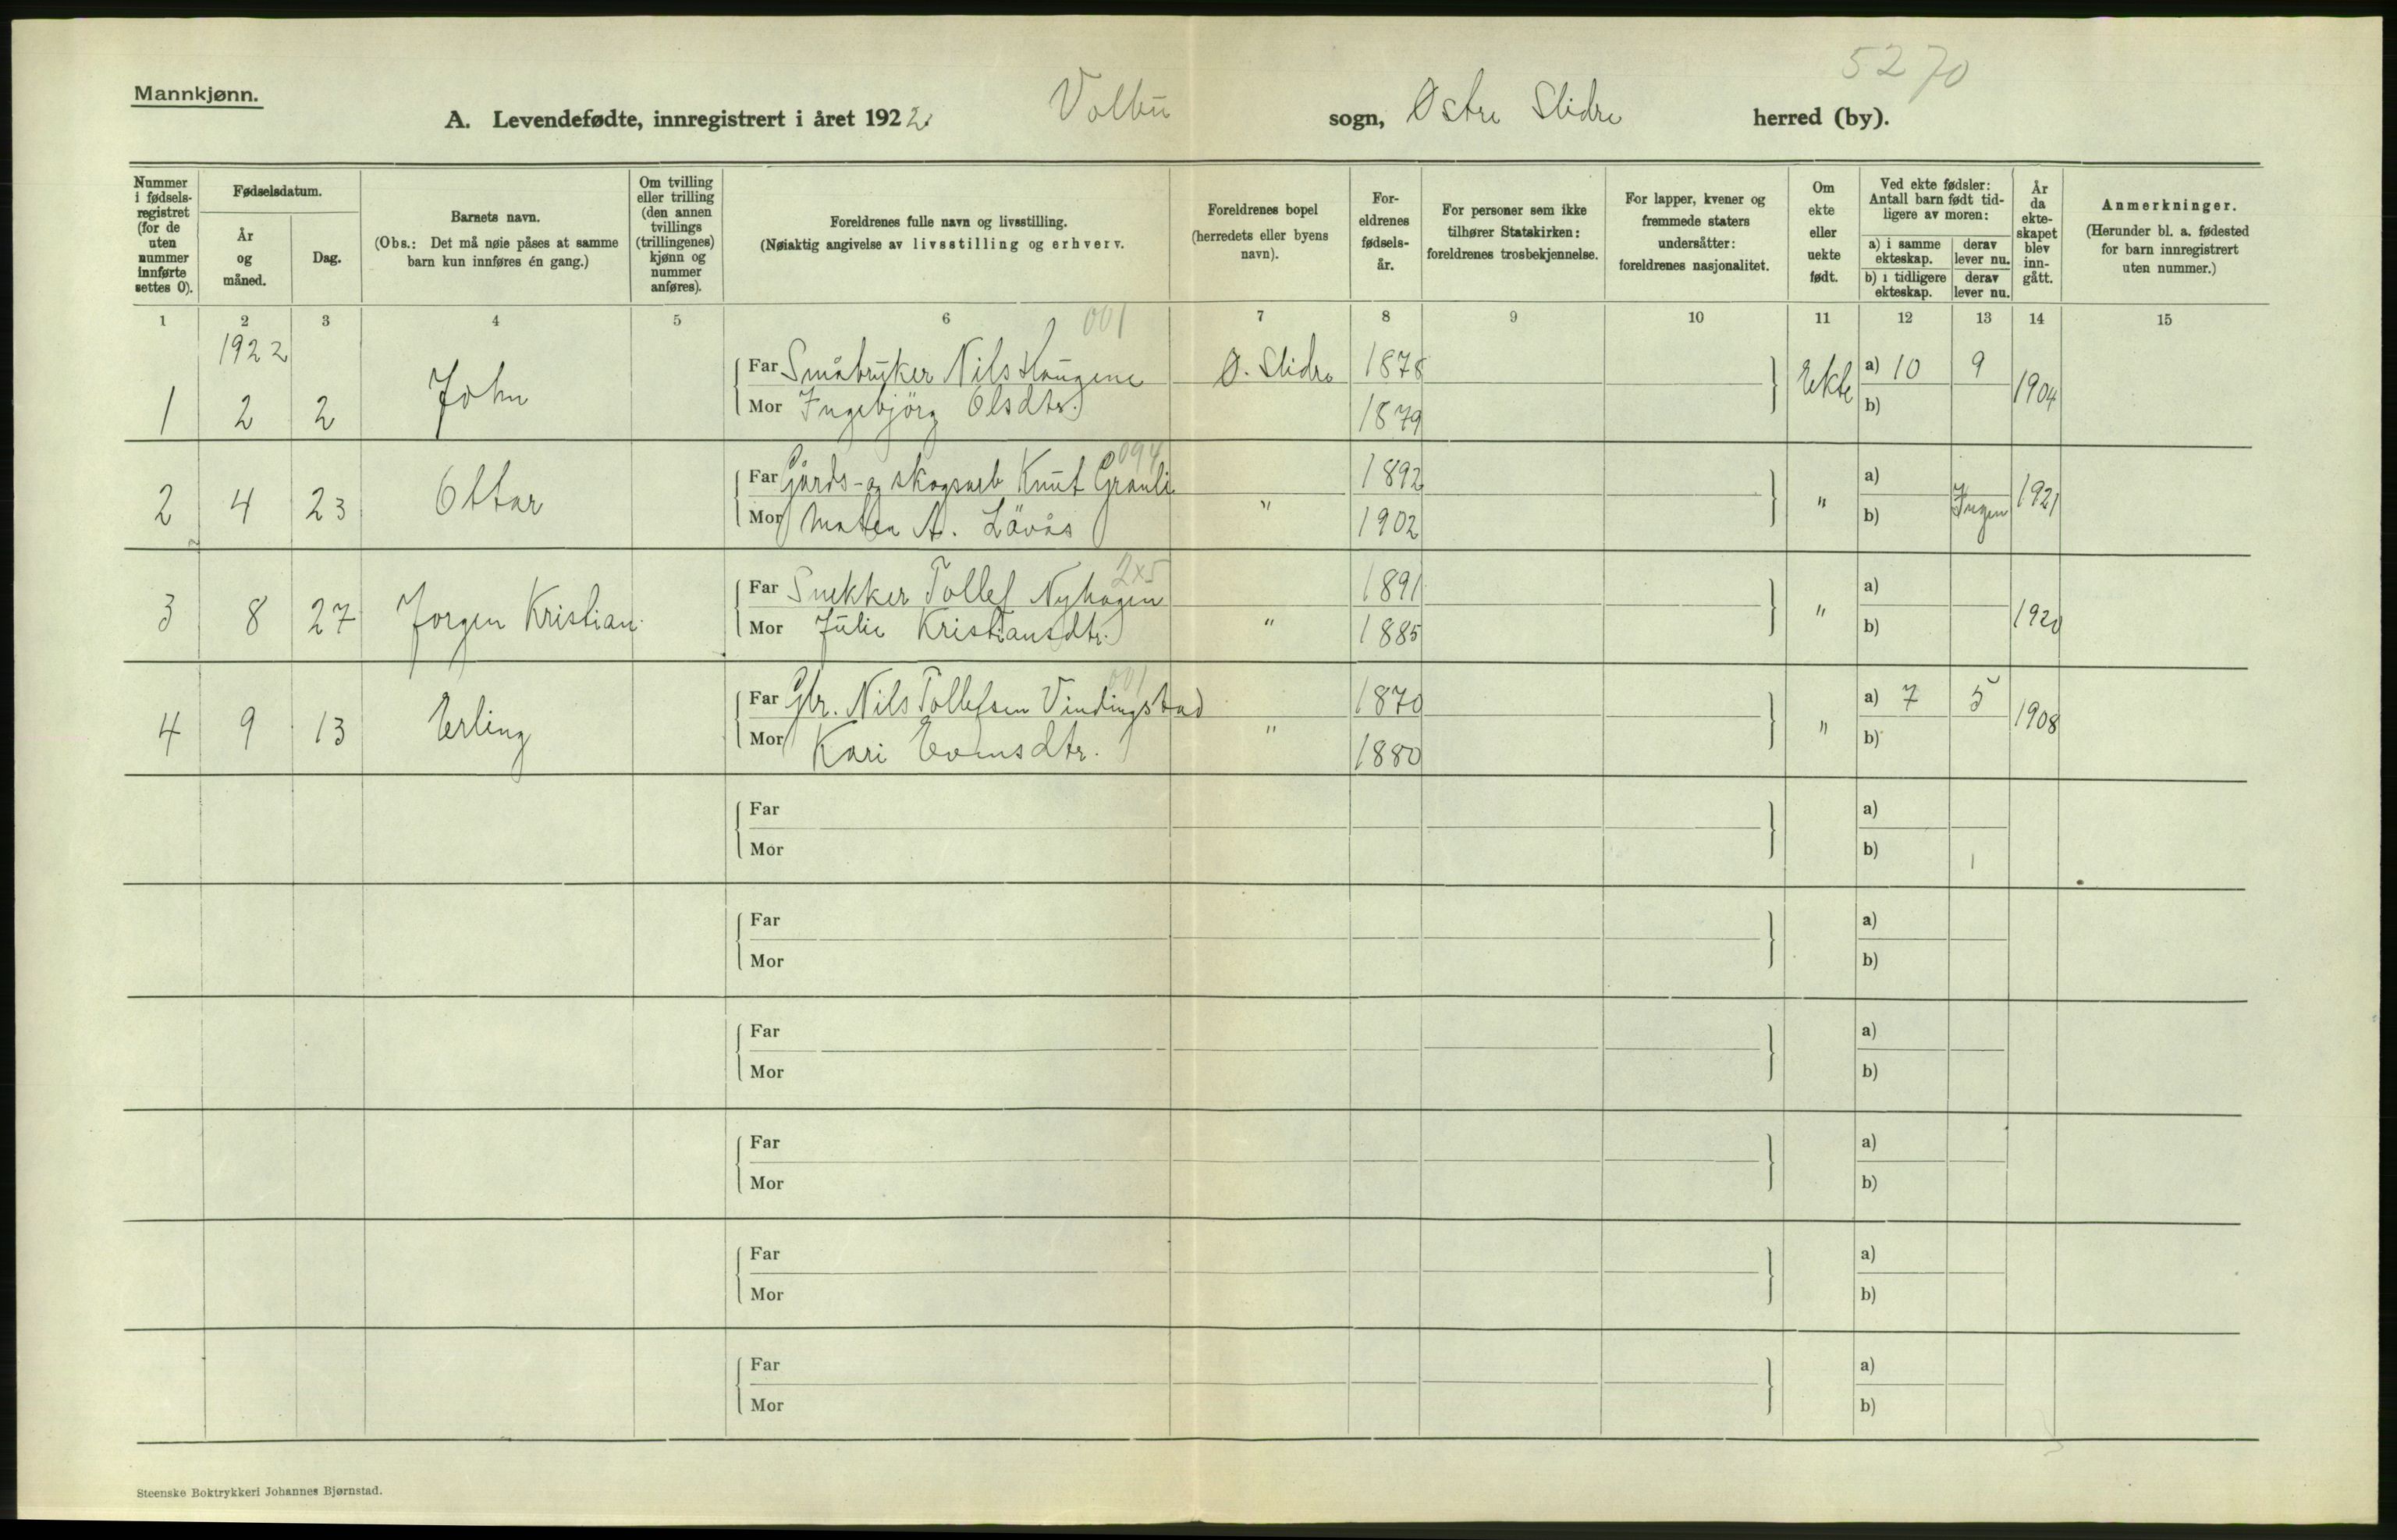 5270
Mannkjønn.
A. Levendefødte, innregistrert i året 1922. Volbu sogn, Østre Slidre herred (by).
Nummer i fødselsregistret (for de uten nummer innførte settes 0).
Fødselsdatum.
År og måned.
Dag.
Barnets navn.
(Obs.: Det må nøie påses at samme barn kun innføres én gang.)
Om tvilling eller trilling (den annen tvillings (trillingenes) kjønn og nummer anføres).
Foreldrenes fulle navn og livsstilling.
(Nøiaktig angivelse av livsstilling og erhverv.
Foreldrenes bopel (herredets eller byens navn).
Foreldrenes fødselsår.
For personer som ikke tilhører Statskirken: foreldrenes trosbekjennelse.
For lapper, kvener og fremmede staters undersåtter: foreldrenes nasjonalitet.
Om ekte eller uekte født.
Ved ekte fødsler: Antall barn født tidligere av moren:
a) i samme ekteskap.
derav lever nu.
b) i tidligere ekteskap.
derav lever nu.
År da ekteskapet blev inngått.
Anmerkninger.
(Herunder bl. a. fødested for barn innregistrert uten nummer.)
1 2 3 4 5 6 7 8 9 10 11 12 13 14 15
1922
001
1 2 2 John
Far Småbruker Nils Haugene Ø. Slidre 1878 Ekte a) 10 9 1904
Mor Ingebjörg Olsdtr. 1879 b)
094
2 4 23 Ottar
Far Gårds- og skogsarb Knut Granli 1892 " a) Ingen 1921
Mor Mathea A. Lövås " 1902 b)
2x5
3 8 27 Jorgen Kristian
Far Snekker Tollef Nyhagen 1891 " a) 1920
Mor Julie Kristiansdtr. " 1885 b)
001
4 9 13 Erling
Far Gbr. Nils Tollefsen Vindingstad 1870 " a) 7 5 1908
Mor Kari Evensdtr. " 1880 b)
Far a)
Mor b)
Far a)
Mor b)
Far a)
Mor b)
Far a)
Mor b)
Far a)
Mor b)
Far a)
Mor b)
Steenske Boktrykkeri Johannes Bjørnstad.